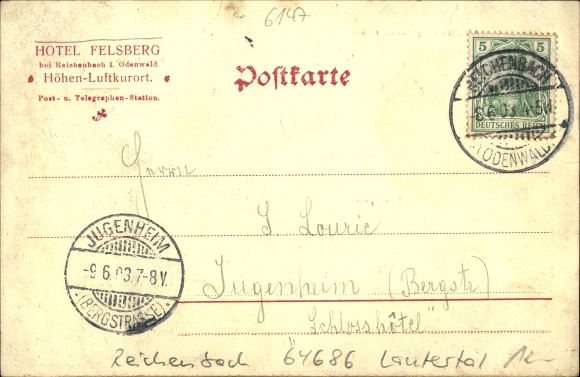 6147
HOTEL FELSBERG
bei Reichenbach i. Odenwald
Höhen-Luftkurort.
Post- u. Telegraphen-Station.
Postkarte
5 5
DEUTSCHES REICH
REICHENBACH
8.6.03.4-5N.
(ODENWALD)
Herrn
S. Lourié
Jugenheim (Bergstr)
"Schlosshôtel"
JUGENHEIM
-9.6.03.7-8V.
(BERGSTRASSE)
Reichenbach 64686 Lautertal